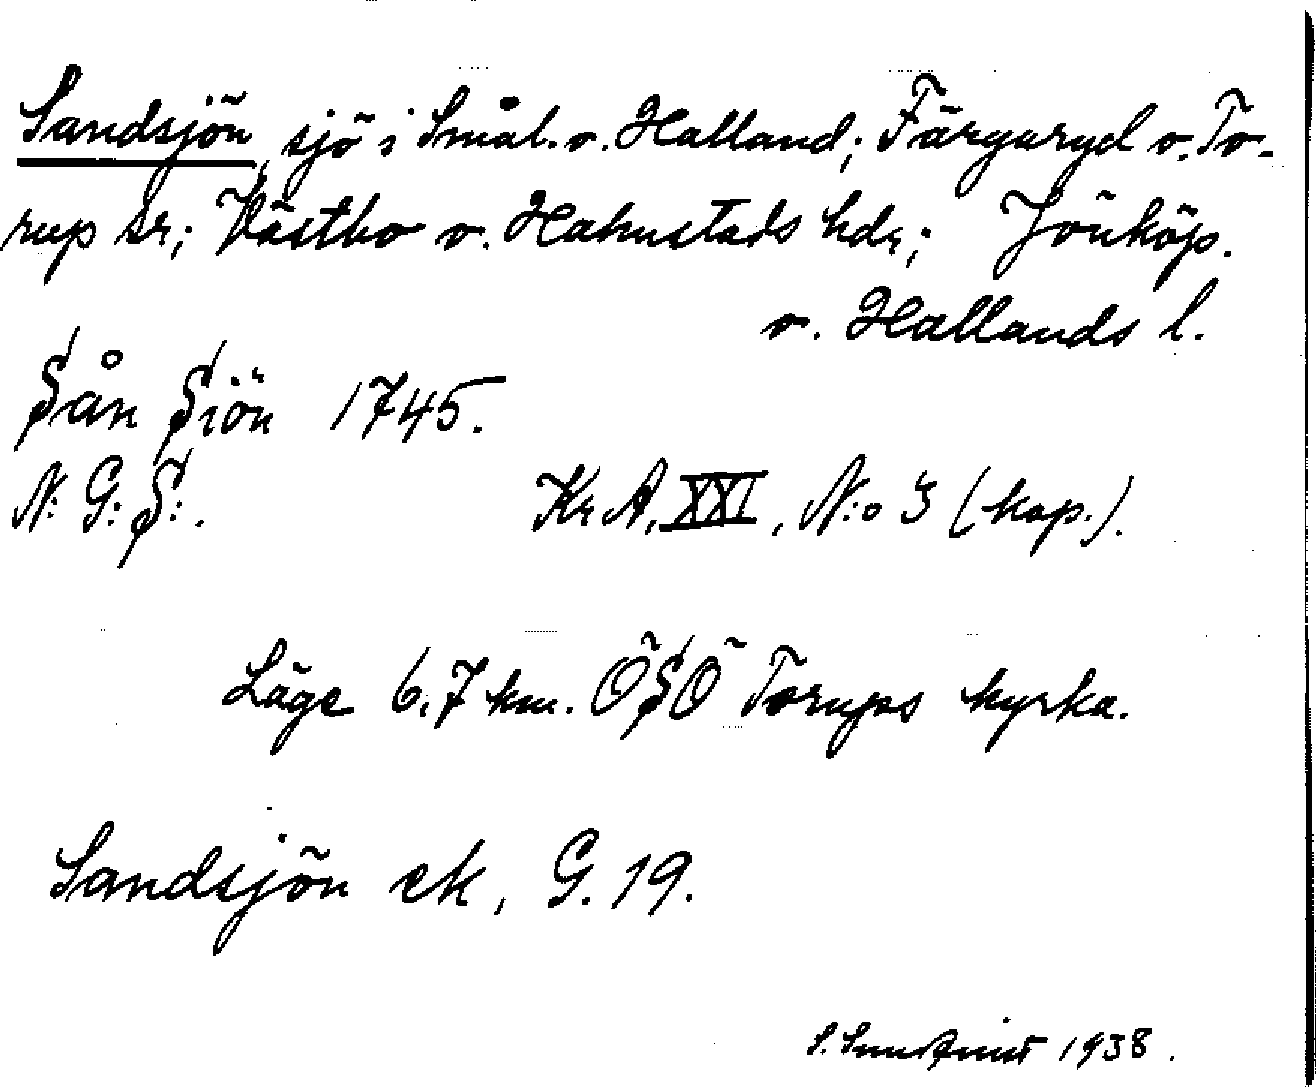 Sandsjön, sjö i Smål. o. Halland; Färgaryd o. To-
rup sr; Västbo o. Halmstads hdr; Jönköp.
o. Hallands l.
Sån Siön 1745.
N: G: S:. Kr A, XXI, N:o 3 (kop.).
Läge 6,7 km. ÖSÖ Torups kyrka.
Sandsjön ek, G. 19.
S. 1938.